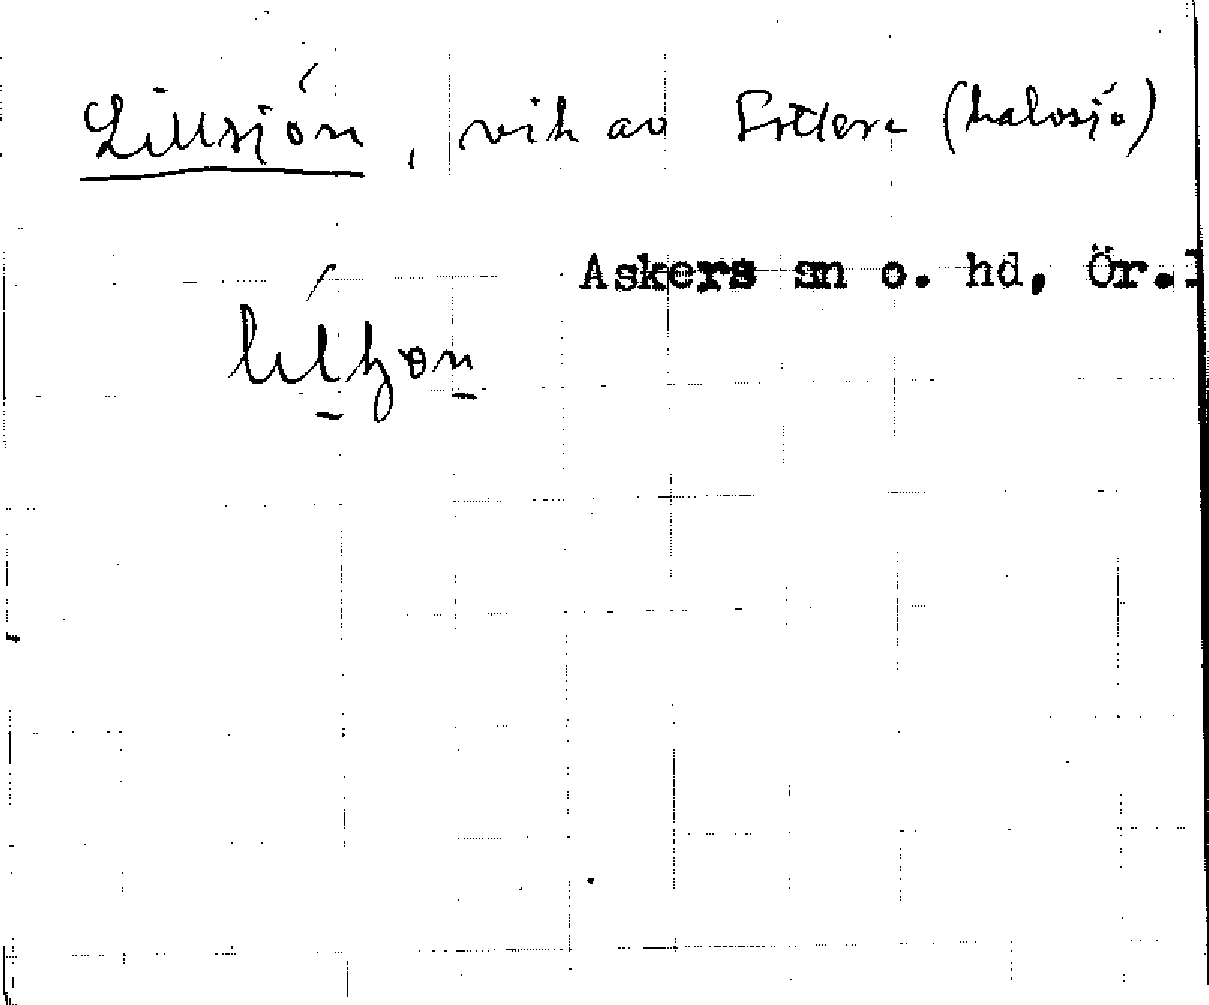 Lillsjön, vik av (halvsjö)
Askers sn o. hd, Ör.l